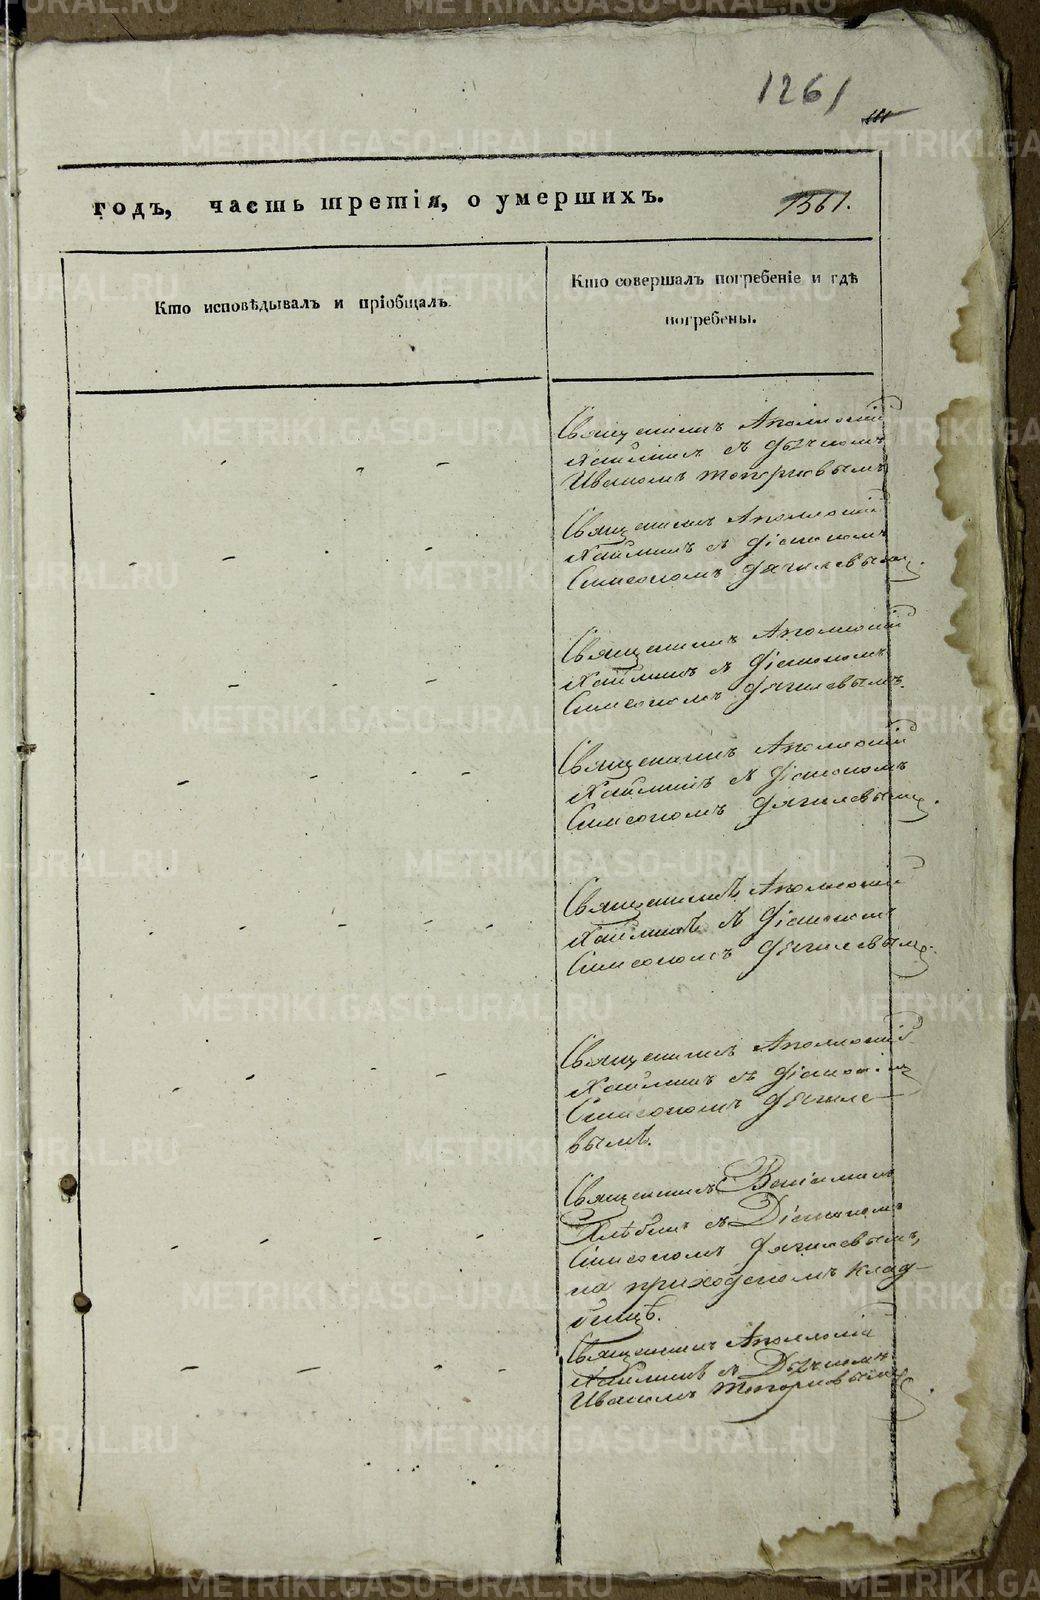 1261
годъ, часть третія, о умершихъ.
1361.
Кто исповѣдывалъ и пріобщалъ.
Кто совершалъ погребеніе и гдѣ
погребены.
Священникъ Аполлоній
съ дьячкомъ
Иваномъ Топорковымъ
Священникъ Аполлоній
съ діакономъ
Симеономъ Дягилевымъ.
Священникъ Аполлоній
съ діакономъ
Симеономъ Дягилевымъ.
Священникъ Аполлоній
съ діакономъ
Симеономъ Дягилевымъ.
Священникъ Аполлоній
съ діакономъ
Симеономъ Дягилевымъ.
Священникъ Аполлоній
съ діакономъ
Симеономъ Дягиле-
вымъ.
Священникъ Веніаминъ
съ Діакономъ
Симеономъ Дягилевымъ,
на приходскомъ клад-
бищѣ.
Священникъ Аполлоній
съ Дьячкомъ
Иваномъ Топорковымъ.
METRIKI.GASO-URAL.RU